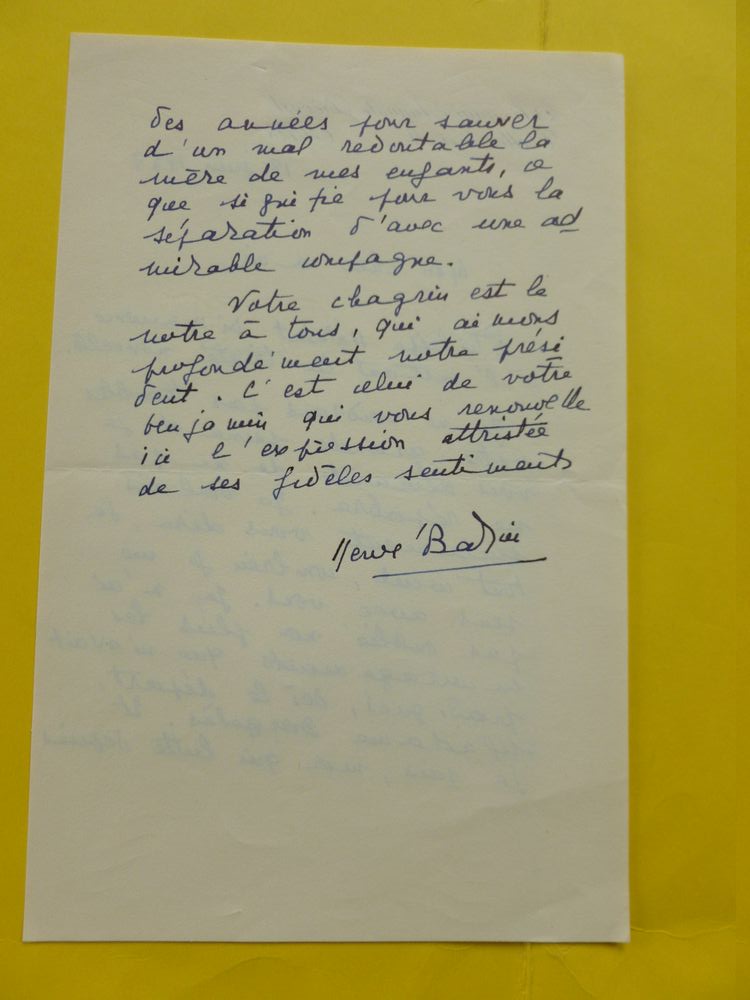 des années pour sauver
d'un mal redoutable la
mère de mes enfants, ce
que signifie pour vous la
séparation d'avec une ad
mirable compagne.
Votre chagrin est le
notre à tous, qui aimons
profondément notre prési
dent. C'est celui de votre
benjamin qui vous renouvelle
ici l'expression attristée
de ses fidèles sentiments
Hervé Bazin